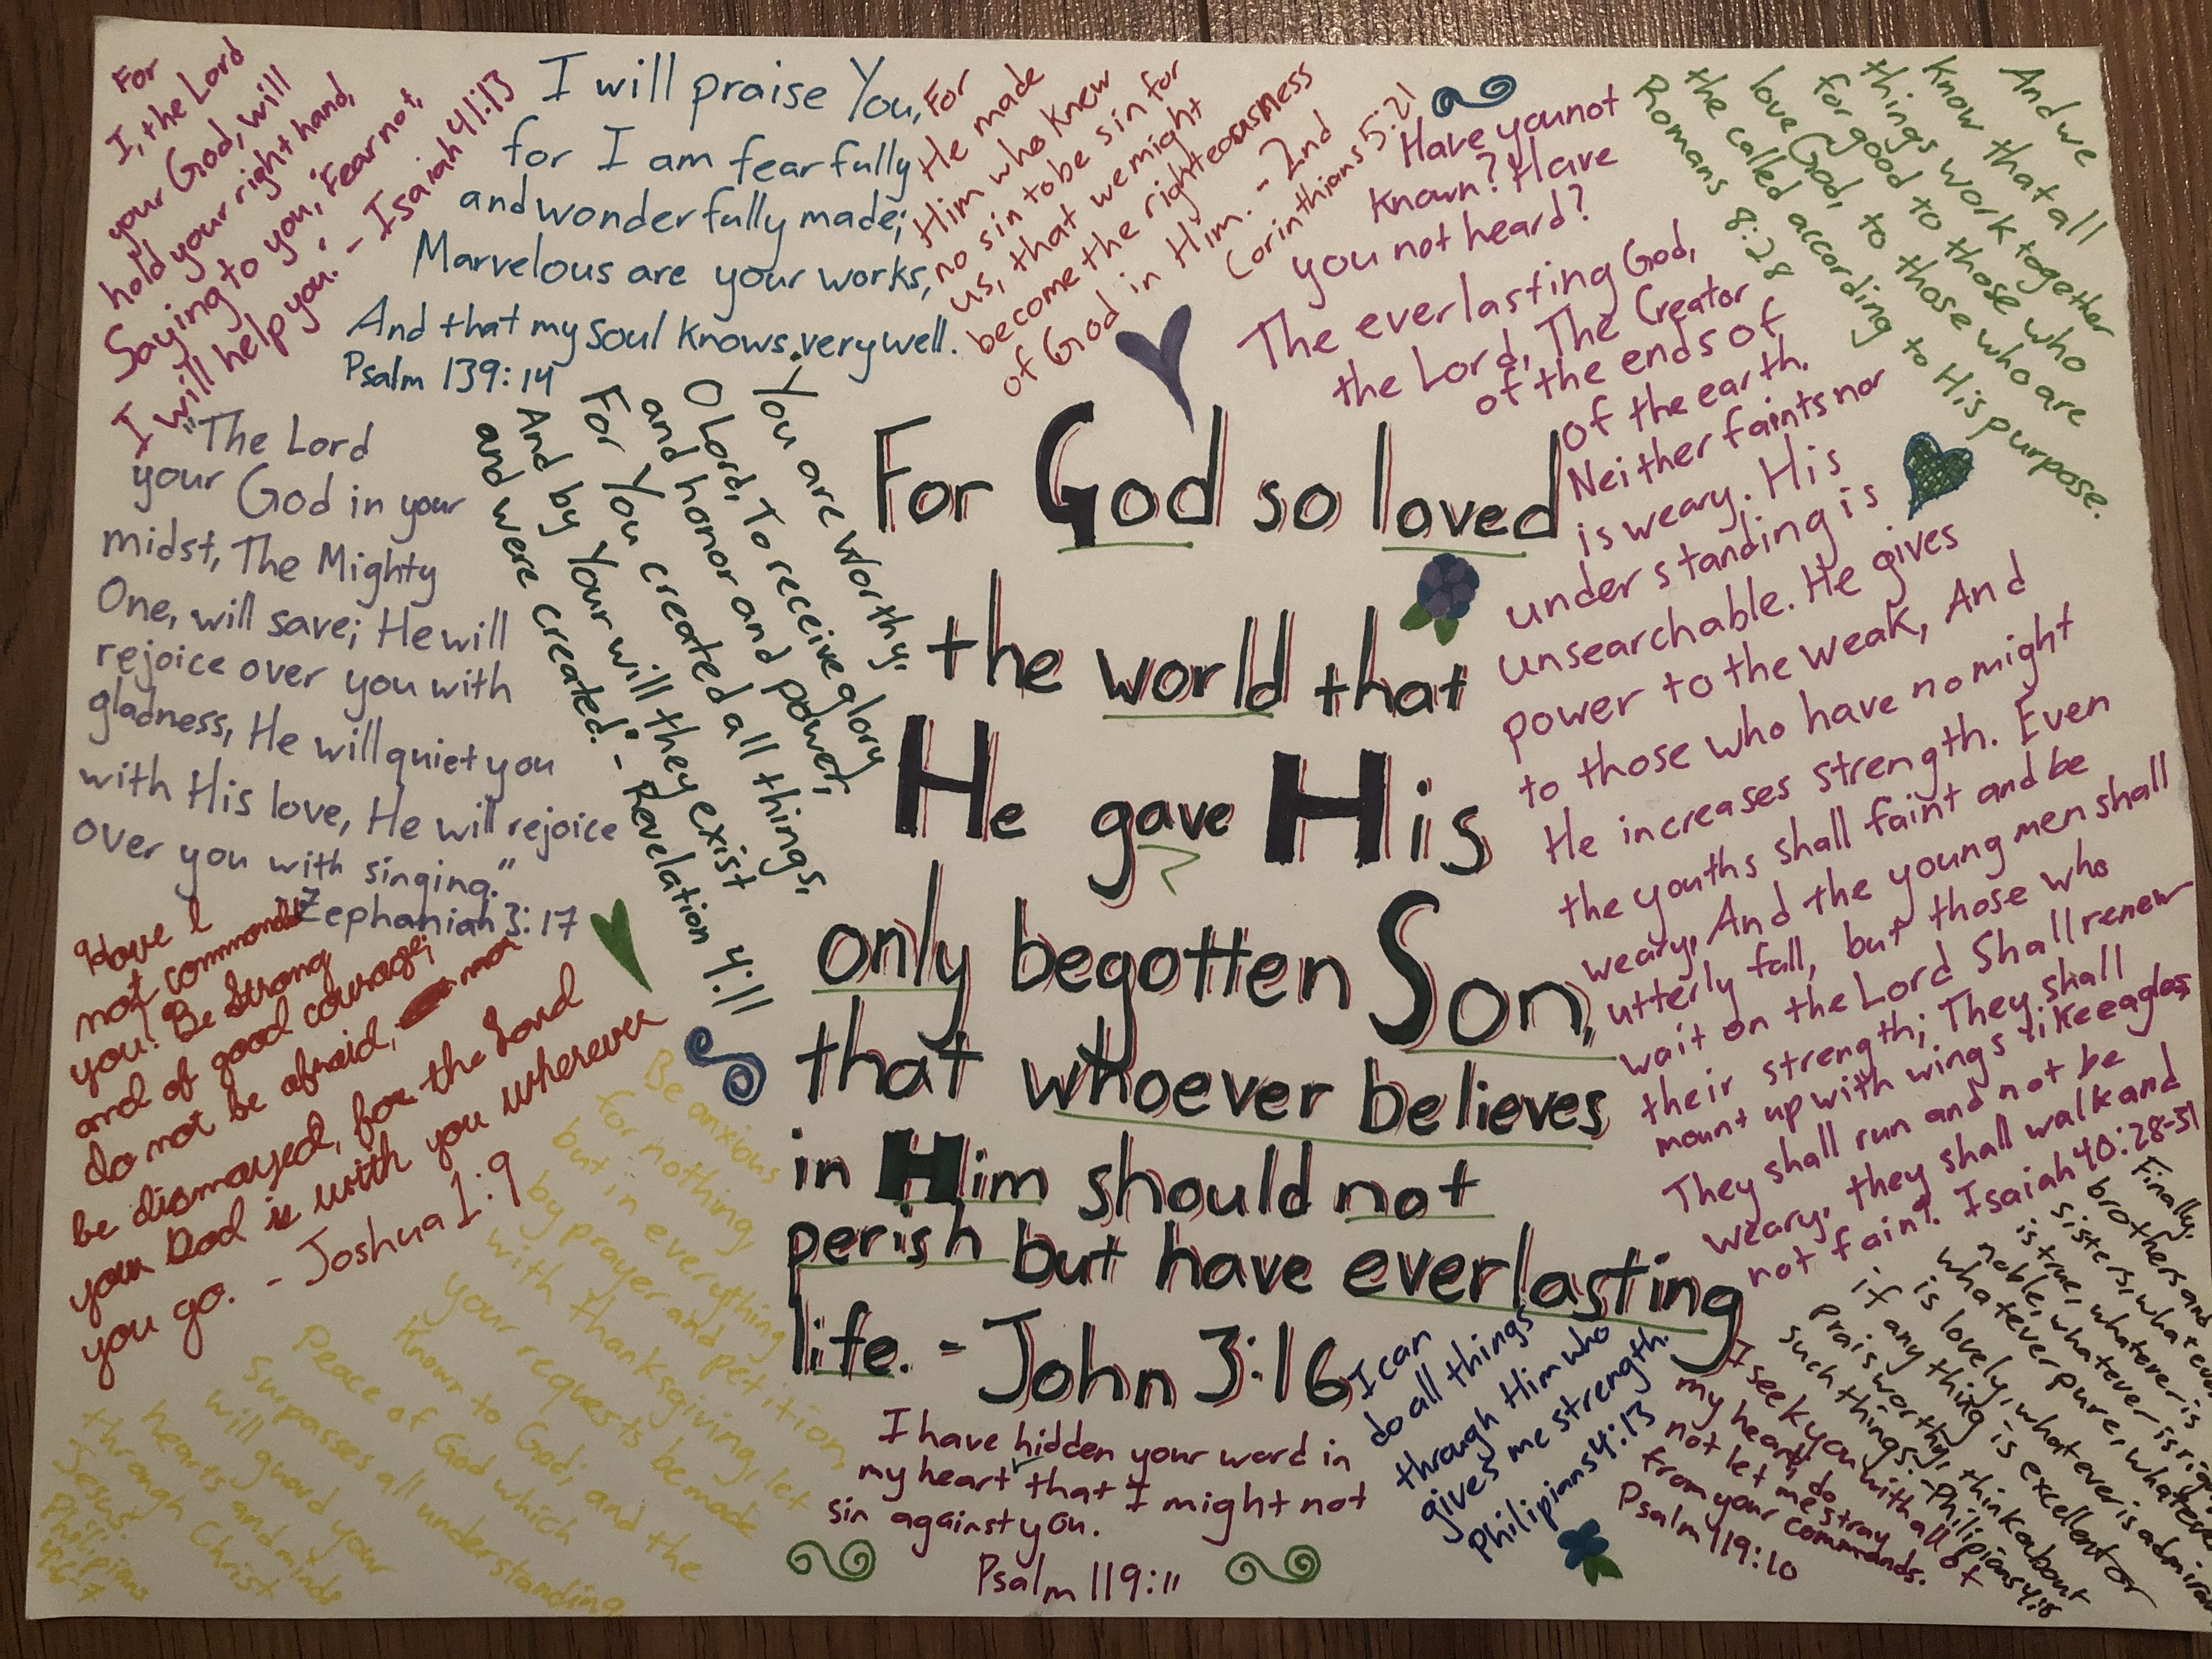 For
I, the Lord
your God, will
hold your right hand,
Saying to you, "Fear not,
I will help you." - Isaiah 41:13
I will praise You,
for I am fearfully
and wonderfully made;
Marvelous are your works,
And that my soul knows very well.
Psalm 139:14
For
He made
Him who knew
no sin to be sin for
us, that we might
become the righteousness
of God in Him. - 2nd
Corinthians 5:21
Have you not
known? Have
you not heard?
The everlasting God,
the Lord, The Creator
of the ends of
of the earth.
Neither faints nor
is weary. His
understanding is
unsearchable. He gives
power to the weak, And
to those who have no might
He increases strength. Even
the youths shall faint and be
weary, And the young men shall
utterly fall, but those who
wait on the Lord Shall renew
their strength; They shall
mount up with wings like eagles
They shall run and not be
weary, they shall walk and
not faint. Isaiah 40:28-31
And we
know that all
things work together
for good to those who
love God, to those who are
the called according to His purpose.
Romans 8:28
"The Lord
your God in your
midst, The Mighty
One, will save; He will
rejoice over you with
gladness, He will quiet you
with His love, He will rejoice
over you with singing."
-Zephaniah 3:17
You are worthy,
O Lord, To receive glory
and honor and power;
For You created all things,
And by Your will they exist
and were created." - Revelation 4:11
For God so loved
the world that
He gave His
only begotten Son,
that whoever believes
in Him should not
perish but have everlasting
life. - John 3:16
Have I
not commanded
you? Be strong
and of good courage;
do not be afraid, nor
be dismayed, for the Lord
your God is with you wherever
you go. - Joshua 1:9
Be anxious
for nothing,
but in everything
by prayer and petition,
with thanksgiving, let
your requests be made
known to God; and the
Peace of God which
surpasses all understanding
will guard your
hearts and minds
through Christ
Jesus.
Philipians
4:6-7
I have hidden your word in
my heart that I might not
sin against you.
Psalm 119:11
I can
do all things
through Him who
gives me strength.
Philipians 4:13
I seek you with all of
my heart; do
not let me stray
from your commands.
Psalm 119:10
Finally,
brothers and
sisters, whatever
is true, whatever is
noble, whatever is right
whatever pure, whatever
is lovely, whatever is
if anything is excellent or
praiseworthy, think about
such things. - Philipians 4:8